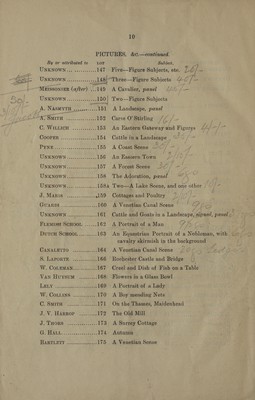 10
PICTURES, &c.—continued.
By or attributed to LOT Subject.
UNKNOWN 147 Five—Figure Subjects, etc.
UNKNOWN 148 Three—Figure Subjects
MEISSONIER (after) 149 A Cavalier, panel
UNKNOWN 150 Two—Figure Subjects
A. NASMYTH 151 A Landscape, panel
A. SMITH 152 Carse O' Stirling
C. WILLICH 153 An Eastern Gateway and Figures
COOPER 154 Cattle in a Landscape
PUNE 155 A Coast Scene
UNKNOWN 156 An Eastern Town
UNKNOWN 157 A Forest Scene
UNKNOWN 158 The Adoration, panel
UNKNOWN 158A Two—A Lake Scene, and one other
J. MARCH 159 Cottages and Poultry
GUARDI 160 A Venetian Canal Scene
UNKNOWN 161 Cattle and Goats in a Landscape, signed, panel
FLEMISH SCHOOL 162 A Portrait of a Man
DUTCH SCHOOL 163 An Equestrian Portrait of a Nobleman, with
cavalry skirmish in the background
CANALETTO 164 A Venetian Canal Scene
S. LAPORTE 166 Rochester Castle and Bridge
W. COLEMAN 167 Cruel and Dish of Fish on a Table
VAN HUYSUM 168 Flowers in a Glass Bowl
LELY 169 A Portrait of a Lady
W. COLLINS 170 A Boy mending Nets
C. SMITH 171 On the Thames, Maidenhead
J. V. HARROP 172 The Old Mill
J. THORS 173 A Surrey Cottage
G. HALL 174 Autumn
BARTLETT 175 A Venetian Scene